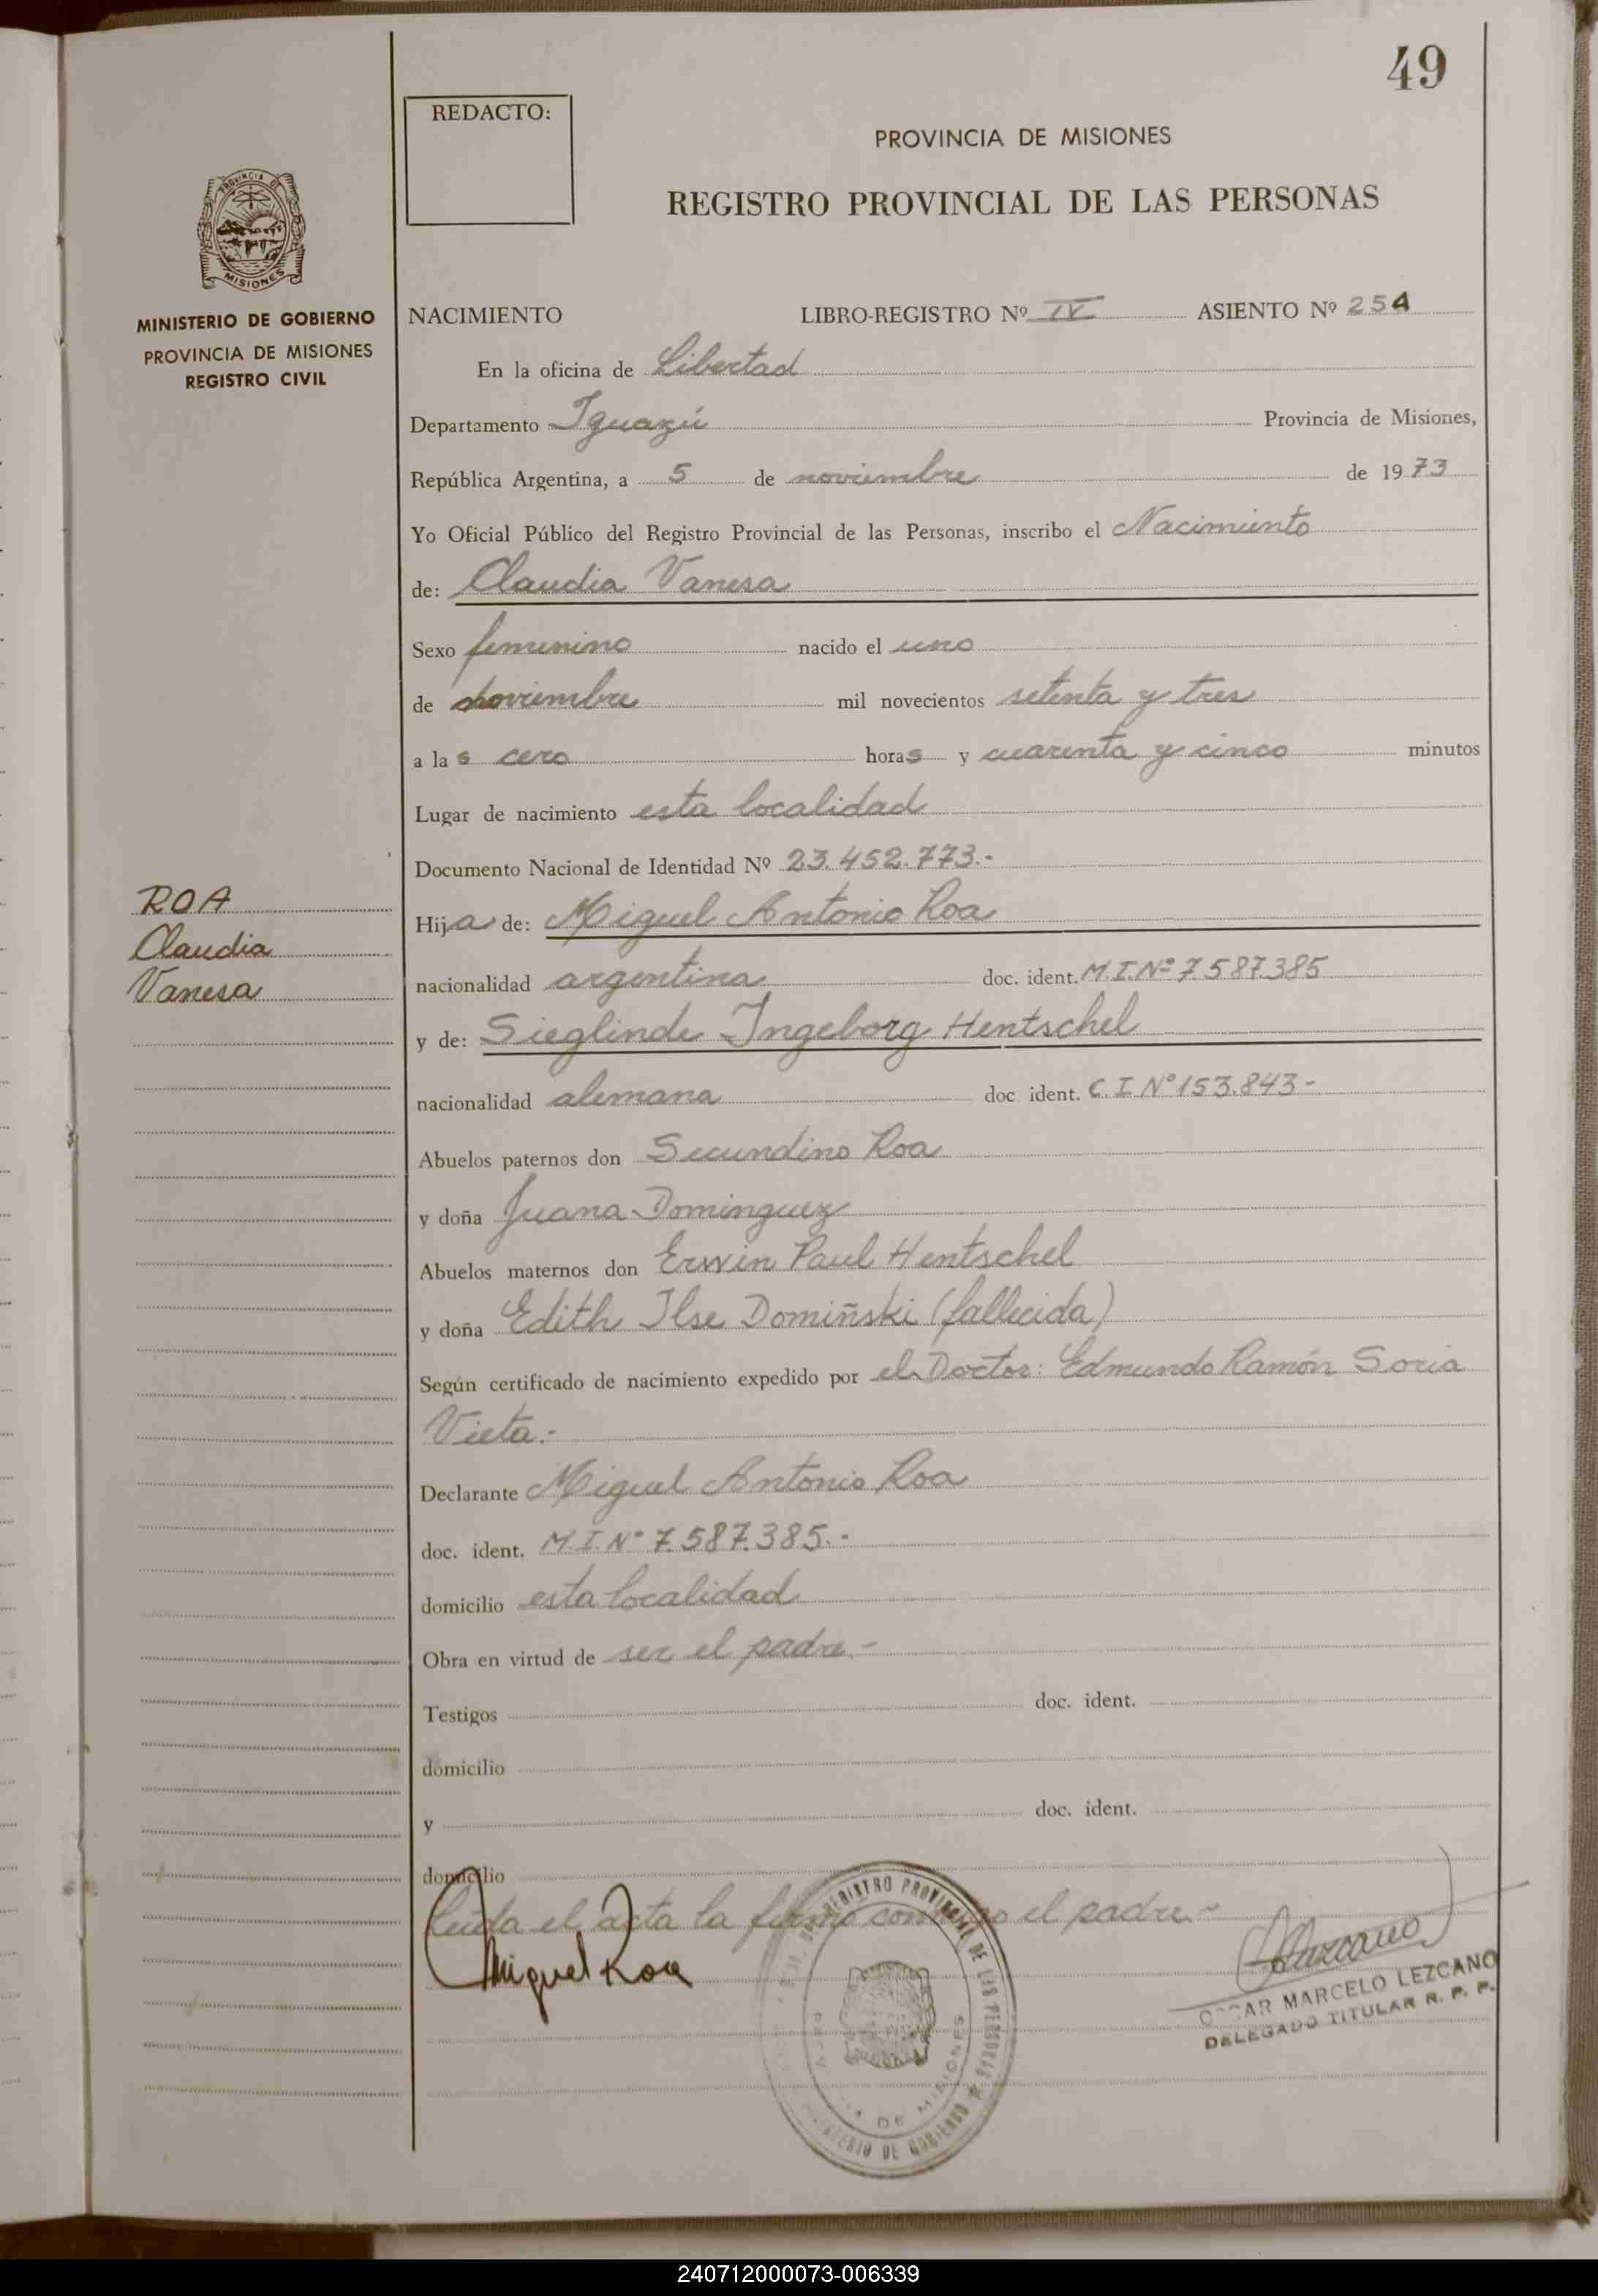 49
REDACTO:
PROVINCIA DE MISIONES
REGISTRO PROVINCIAL DE LAS PERSONAS
PROVINCIA DE
MISIONES
MINISTERIO DE GOBIERNO
PROVINCIA DE MISIONES
REGISTRO CIVIL
NACIMIENTO LIBRO-REGISTRO Nº IV ASIENTO Nº 254
En la oficina de Libertad
Departamento Iguazú Provincia de Misiones,
República Argentina, a 5 de noviembre de 1973
Yo Oficial Público del Registro Provincial de las Personas, inscribo el Nacimiento
de: Claudia Vanesa
Sexo femenino nacido el uno
de noviembre mil novecientos setenta y tres
a las cero horas y cuarenta y cinco minutos
Lugar de nacimiento esta localidad
Documento Nacional de Identidad Nº 23.452.773.-
ROA
Claudia
Vanesa
Hija de: Miguel Antonio Roa
nacionalidad argentina doc. ident. M.I.Nº 7.587.385
y de: Sieglinde Ingeborg Hentschel
nacionalidad alemana doc ident. C.I.Nº 153.843-
Abuelos paternos don Secundino Roa
y doña Juana Dominguez
Abuelos maternos don Erwin Paul Hentschel
y doña Edith Ilse Domiñski (fallecida)
Según certificado de nacimiento expedido por el Doctor: Edmundo Ramón Soria
Vieta.-
Declarante Miguel Antonio Roa
doc. ident. M.I.Nº 7.587.385.-
domicilio esta localidad
Obra en virtud de ser el padre.-
Testigos doc. ident.
domicilio
y doc. ident.
domicilio
Leída el acta la firma conmigo el padre.-
Miguel Roa
REGISTRO PROVINCIAL DE LAS PERSONAS
MINISTERIO DE GOBIERNO
DE MISIONES
Lezcano
OSCAR MARCELO LEZCANO
DELEGADO TITULAR R. P. P.
240712000073-006339